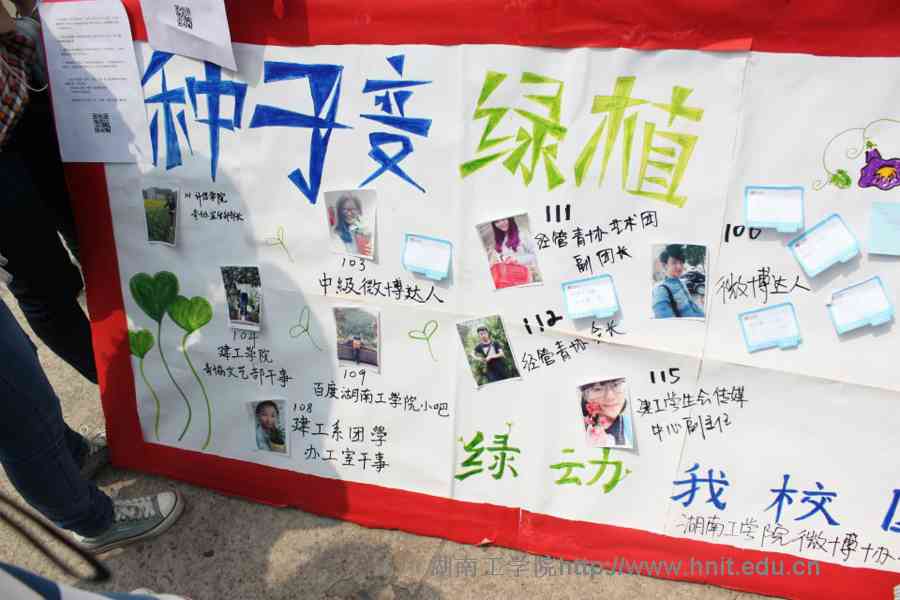 种子变 绿植
中级微博达人
103
111
经管青协艺术团
副团长
100
微博达人
104
建工学院
青协文艺部干事
109
百度湖南工学院小吧
112
经管青协会长
108
建工系团学
办工室干事
115
建工学生会传媒
中心副主任
绿 动
我 校
湖南工学院微博协
湖南工学院http://www.hnit.edu.cn